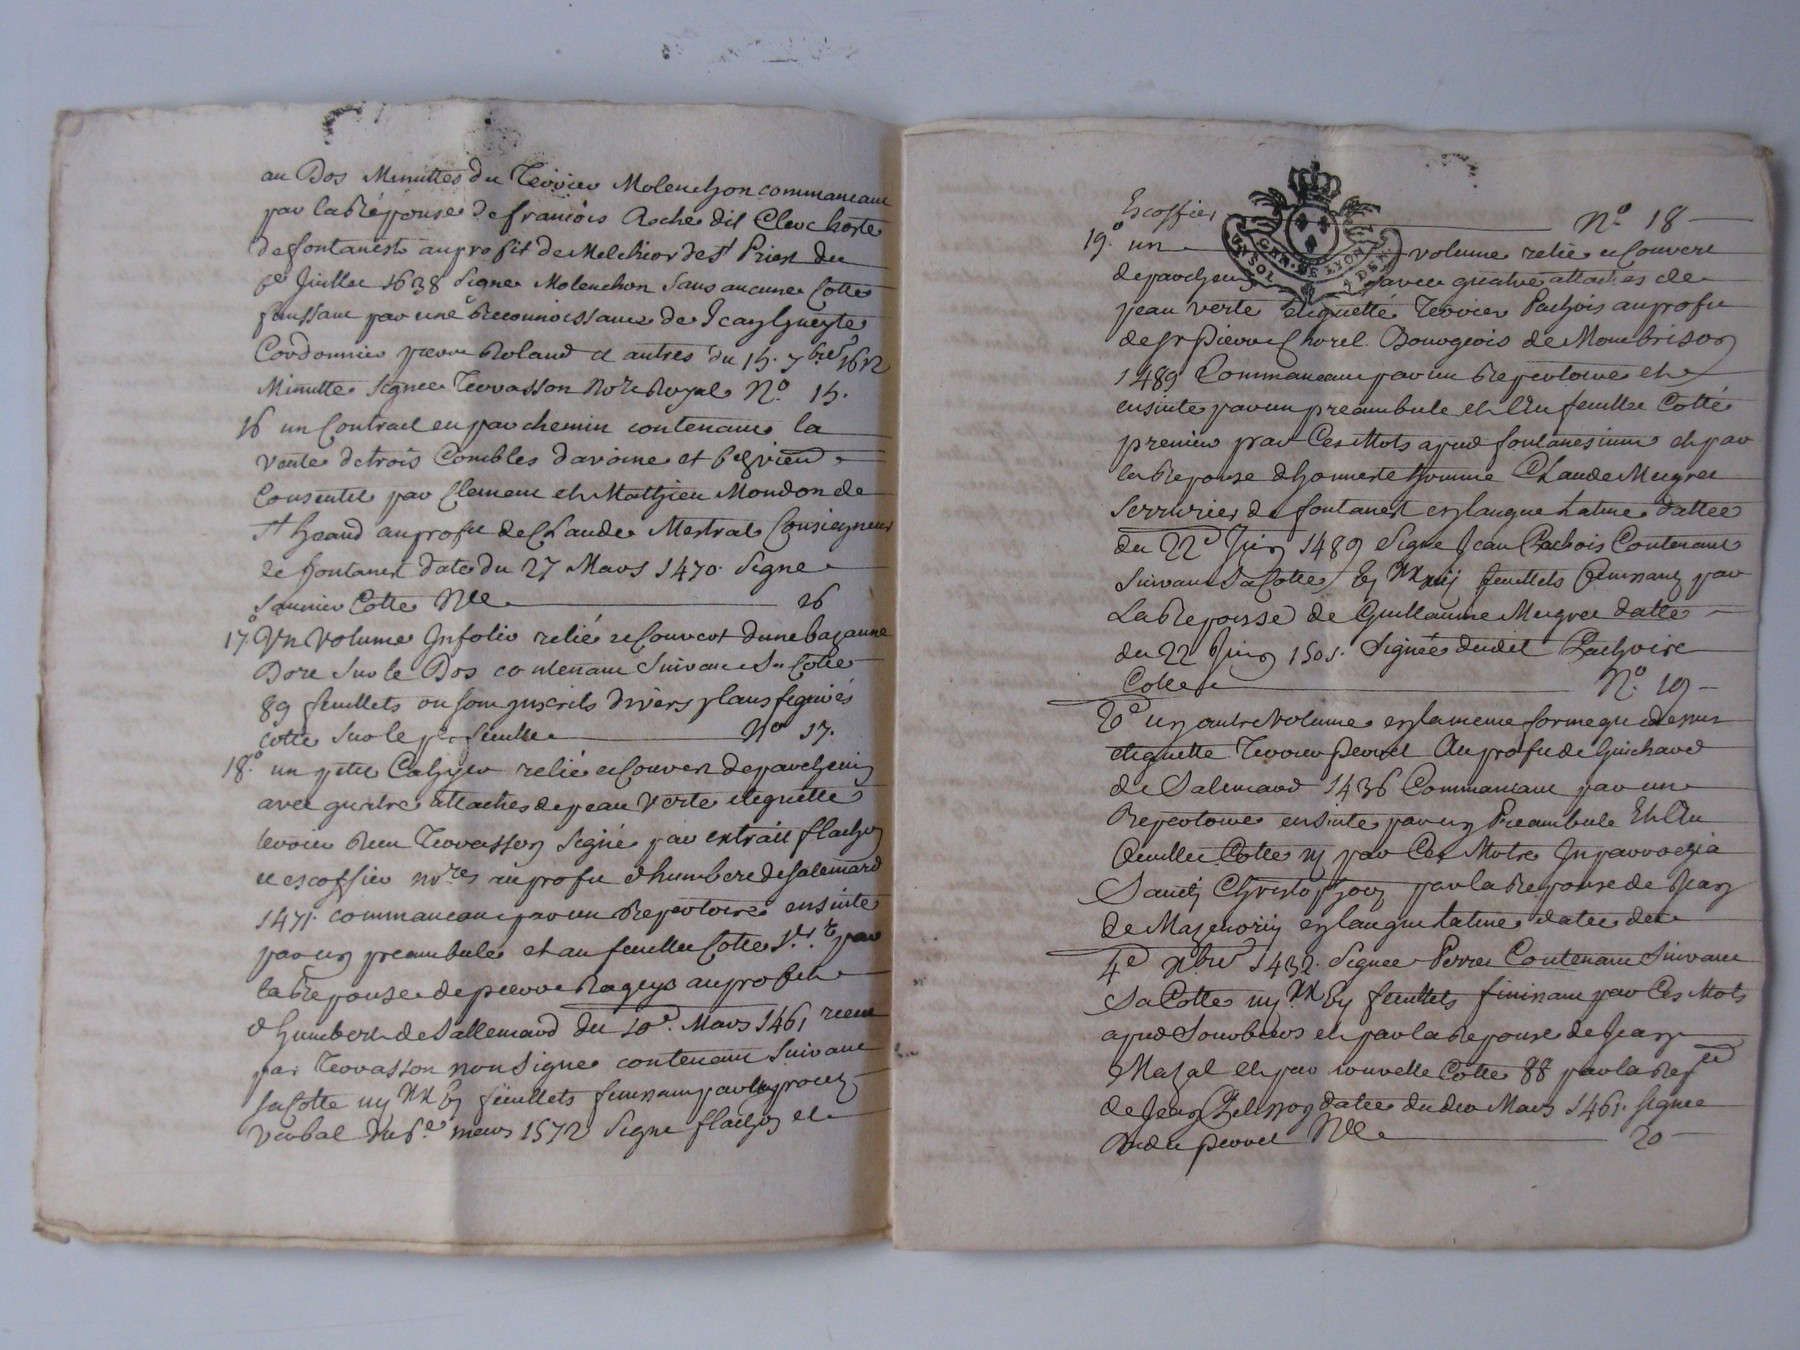 au Dos Minuttes du Terrier Molenchon commancant
par la Réponse de francois Asche dit Clerc hoste
de fontanest au profit de Melchior de St Priest du
Juillet 1638 Signe Molenchon Sans aucune Cotte
finissant par une Reconnoissance de
Cordonnier pierre Roland et autres du 15. 7bre 1612
Minutte Signee Terrasson Nore Royal No. 15.
16 un Contract en parchemin contenant la
vente de trois Combles davoine et
Consentie par Clement et Mathieu Mondon de
St heand au profit de Claude Mestral Consieigneur
de fontanest date du 27 Mars 1470. Signe
Saunier Cotte Nlle 16
17.o Vn Volume Jnfolio relié et Couvert dune bazanne
Dore Sur le Dos contenant Suivant Sa Cotte
89 feuillets ou sont jnscrits divers plans figurés
cotté Sur le pr feuillet No 17.
18.o un petit Cahyer relié et Couvert de parchemin
avec quatre attaches de peau Verte etiquetté
terrier Terrasson Signé par extrait flachon
et escoffier nores au profit d'humbert de Salemard
1471. commancant par un Repertoire ensuitte
par un preambule et au feuillet Cotté par
la Reponse de pierre Rageys au profit
d'humbert de Sallemard du 10e. Mars 1461 receu
par Terrasson non Signe contenant Suivant
sa Cotte iiij XX feuillets finissant par un procez
Verbal du 6e. mars 1572 Signe flachon et
Escoffier No. 18
19.o un volume relié et Couvert
de parchemin avec quatre attaches de
peau verte etiquetté Terrier Pachois au profit
de sr Pierre Chorel Bourgeois de Montbrison
1489 Commancant par un Repertoire et
ensuitte par un preambule et Au feuillet Cotté
premier par Ces Mots apud fontanesium et par
la Reponse dhonneste homme Claude Meygret
Serrurier de fontanest en langue Latine dattée
du 22e Juin 1489 Signe Jean Pachois Contenant
Suivant Sa Cotte feuillets finissant par
La Reponse de Guillaume Meygret datté
du 22 Juin 1501. Signée dudit Pachoire
Cotte No. 19
20e un autre Volume en la meme forme que dessus
etiquette Terrier perret Au profit de Guichard
de Salemard 1436 Commancant par un
Repertoire ensuite par un Preambule Et Au
feuillet Cotte iij par Ces Mots Jn parrochia
Sancti Christophori par la Reponse de Jean
de Mazenoriy en langue Latine datée du
4e xbre 1432. Signee Perret Contenant Suivant
Sa Cotte iiij XX feuillets finissant par Ces Mots
apud Sorbiers et par la Reponse de Jean
Mazal et par nouvelle Cotte 88 par la Repse
de Jean Pelisson datee du dix Mars 1461. signee
dudit perret Nlle 20
GEN. DE LYON